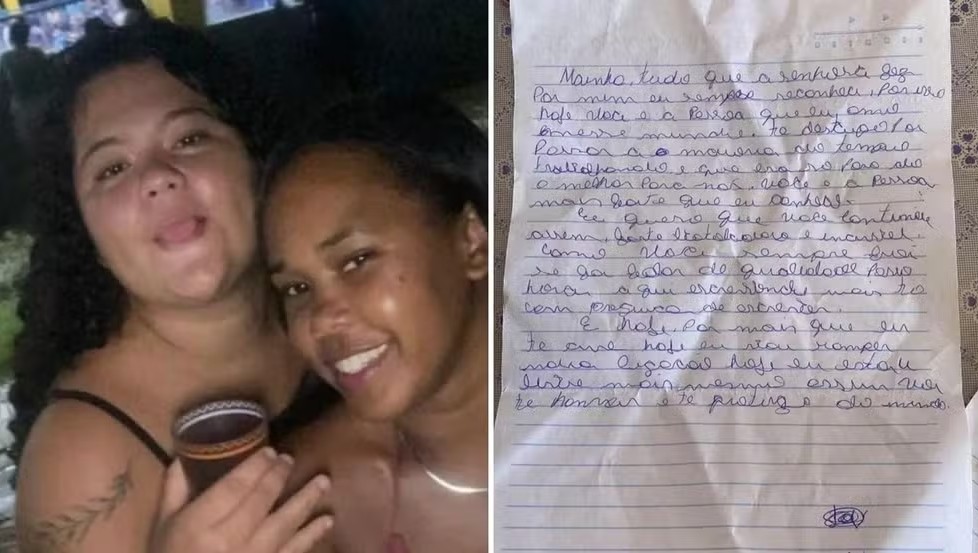 Mainha, tudo que a senhora fez
Por mim eu sempre reconheci, Por isso
hoje voci e a Pessoa que eu amo
nesse mundo, te desculpe Por
Passar a maioria do tempo
trabalhando e que era so Para da
o melhor Para nos. Voce e a Pessoa
mais forte que eu conhese.
Eu quero que voce continue
assem, forte trabalhadora e incrivel.
Como voci sempre foi
de qualidade Para
a que escrevendo mais to
com preguisa de escrever.
E hoje, Por mais que eu
te ame hoje eu vou romper
nossa ligacao hoje eu estou
livre mais mesmo assim vou
te honrar e te protego do mundo.